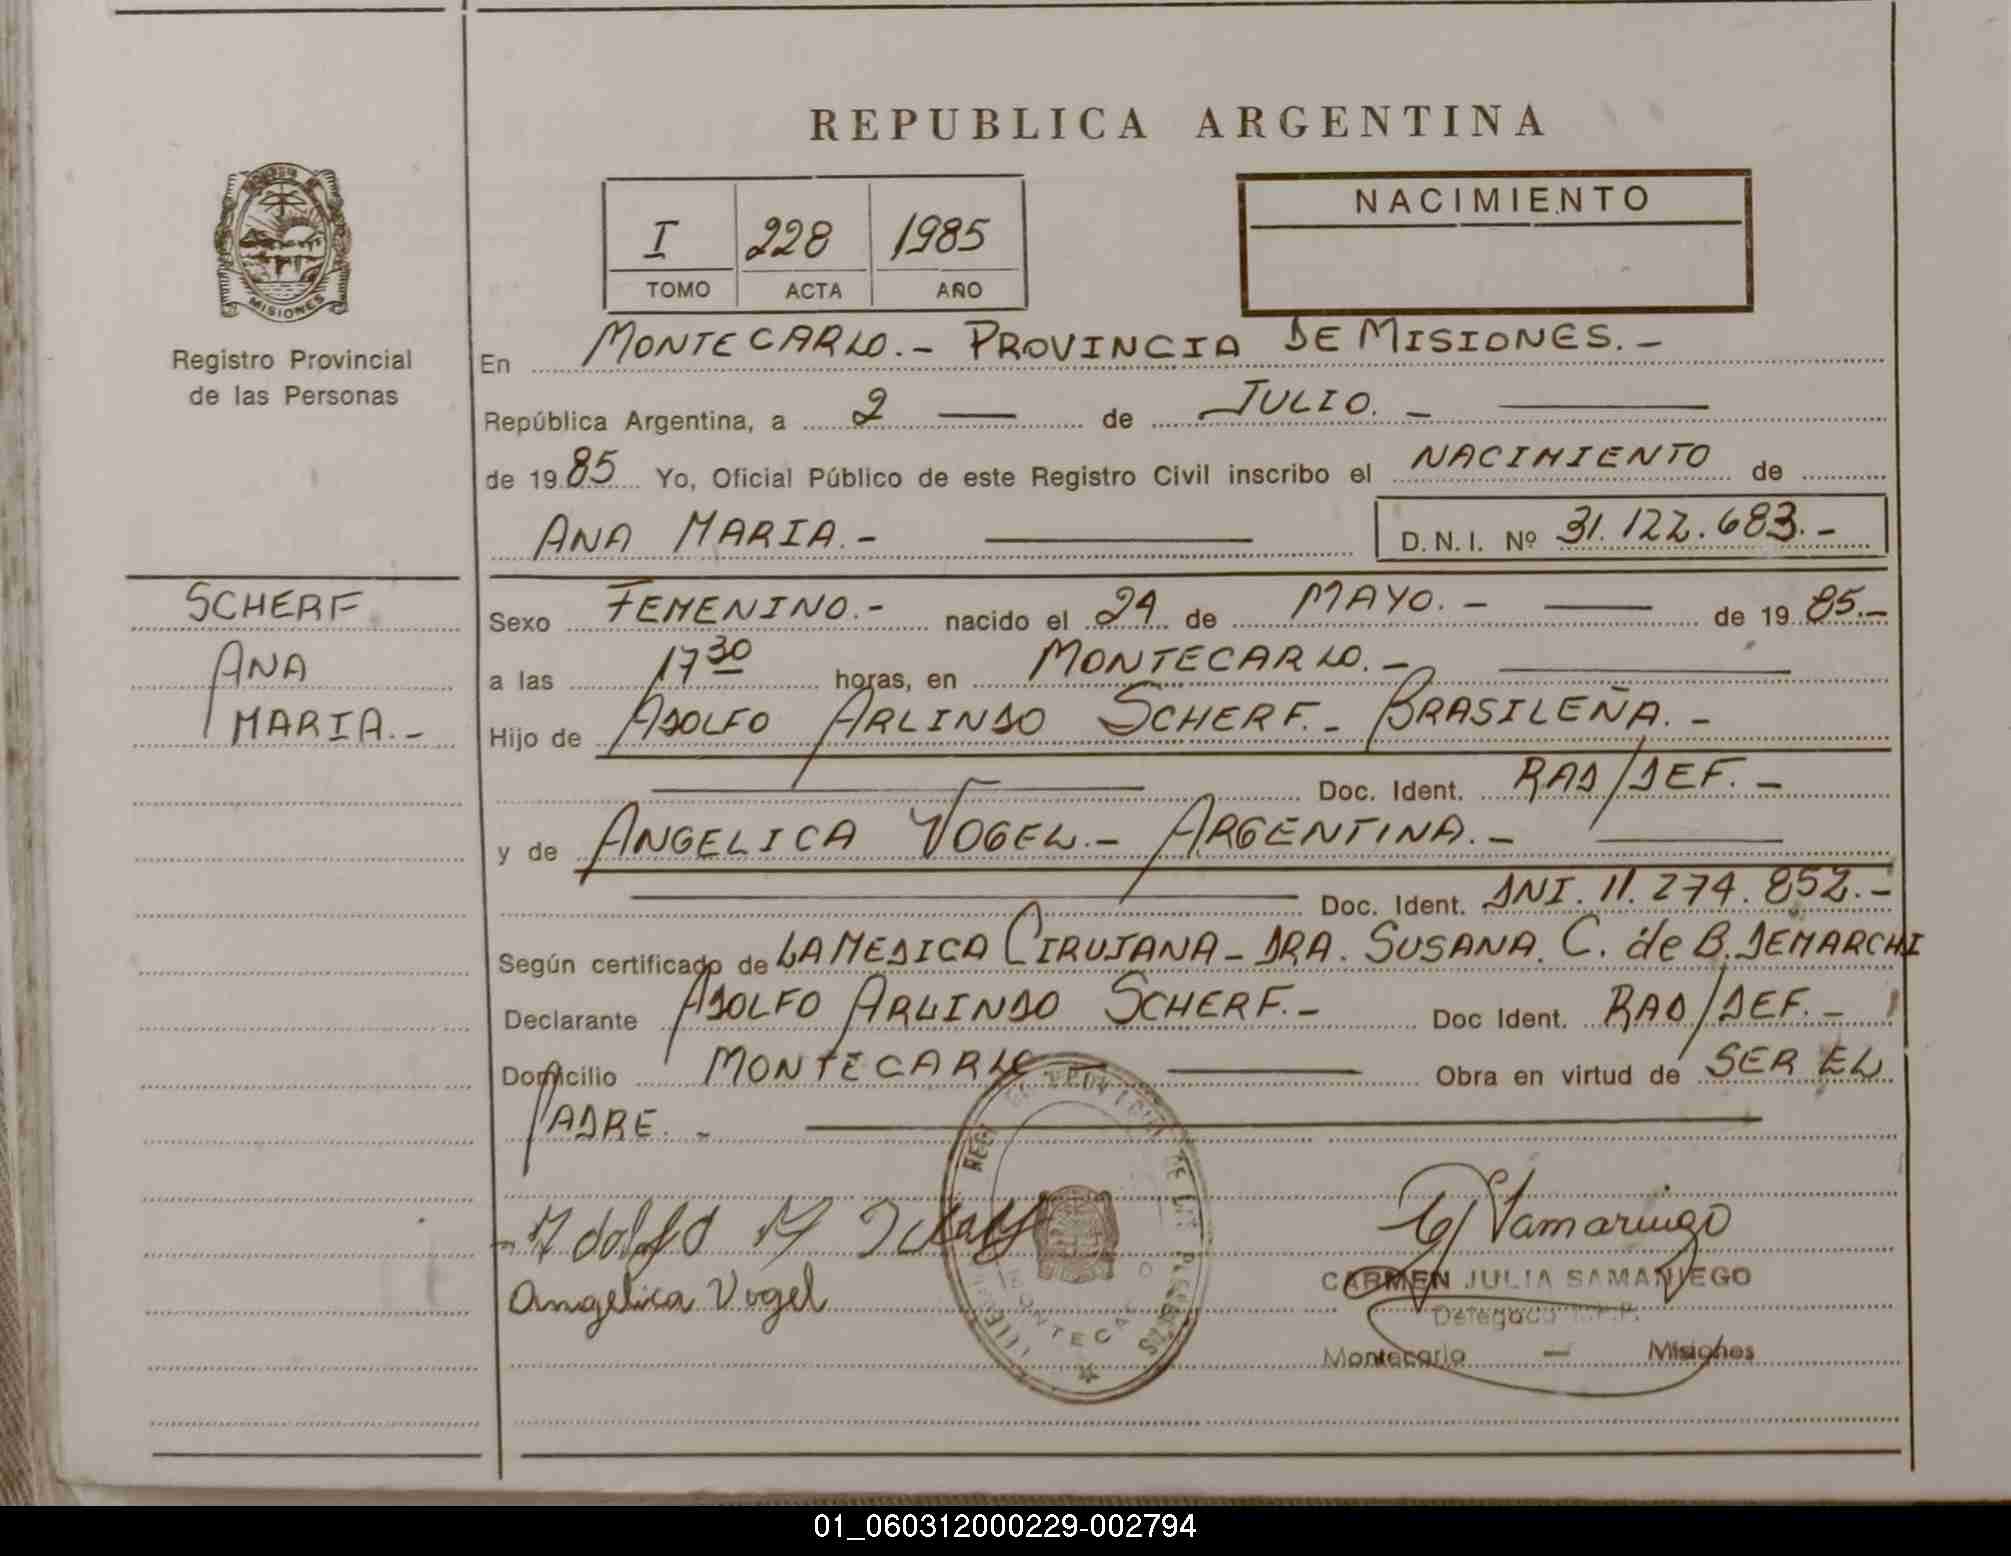 REPUBLICA ARGENTINA
I 228 1985
TOMO ACTA AÑO
NACIMIENTO
MISIONES
Registro Provincial
de las Personas
En MONTECARLO.- PROVINCIA DE MISIONES.-
República Argentina, a 2 — de JULIO. -
de 1985 Yo, Oficial Público de este Registro Civil inscribo el NACIMIENTO de
ANA MARIA.- D.N.I. Nº 31.122.683.-
SCHERF
ANA
MARIA.-
Sexo FEMENINO.- nacido el 24 de MAYO.- de 1985.-
a las 17 30 horas, en MONTECARLO.-
Hijo de ADOLFO ARLINDO SCHERF.- BRASILEÑA.-
Doc. Ident. RAD/DEF.-
y de ANGELICA VOGEL.- ARGENTINA.-
Doc. Ident. DNI. 11.274.852.-
Según certificado de LA MEDICA CIRUJANA - DRA. SUSANA. C. de B. DEMARCHI
Declarante ADOLFO ARLINDO SCHERF.- Doc Ident. RAD/DEF.-
Domicilio MONTECARLO Obra en virtud de SER EL
PADRE. -
Adolfo A
Angelica Vogel
CARMEN JULIA SAMANIEGO
Montecarlo — Misiones
01_060312000229-002794